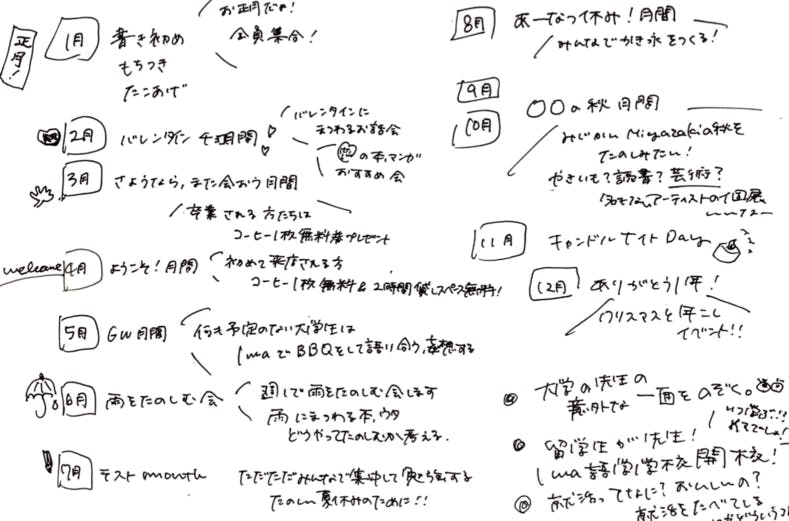 お正月だョ!
全員集合!
正月!
1月
書き初め
もちつき
たこあげ
2月
バレンタイン 1週間
バレンタインに
まつわるお話会
恋の本,マンガ
おすすめ会
3月
さようなら,また会おう月間
卒業される方たちは
コーヒー1枚無料券プレゼント
welcome
4月
ようこそ!月間
初めて来店される方
コーヒー1枚無料& 2時間貸しスペース無料!
5月
GW月間
何も予定のない大学生は
1waでBBQをして語り合う,妄想する
6月
雨をたのしむ会
週1で雨をたのしむ会します
雨にまつわる本,ウタ
どうやってたのしむか考える.
7月
テスト month
ただただみんなで集中して勉強する
たのしい夏休みのために!!
8月
あーなつ休み!月間
みんなでかき氷をつくる!
9月
10月
〇〇の秋月間
みじかいMiyazakiの秋を
たのしみたい!
やきいも?読書?芸術?
アーティストの個展
11月
キャンドルナイトDay
12月
ありがとう1年!
クリスマスと年こし
イベント!!
大学の先生の
意外な一面をのぞく。
留学生が先生!
1wa語学学校開校!
就活ってなに?おいしいの?
就活をたべてしる